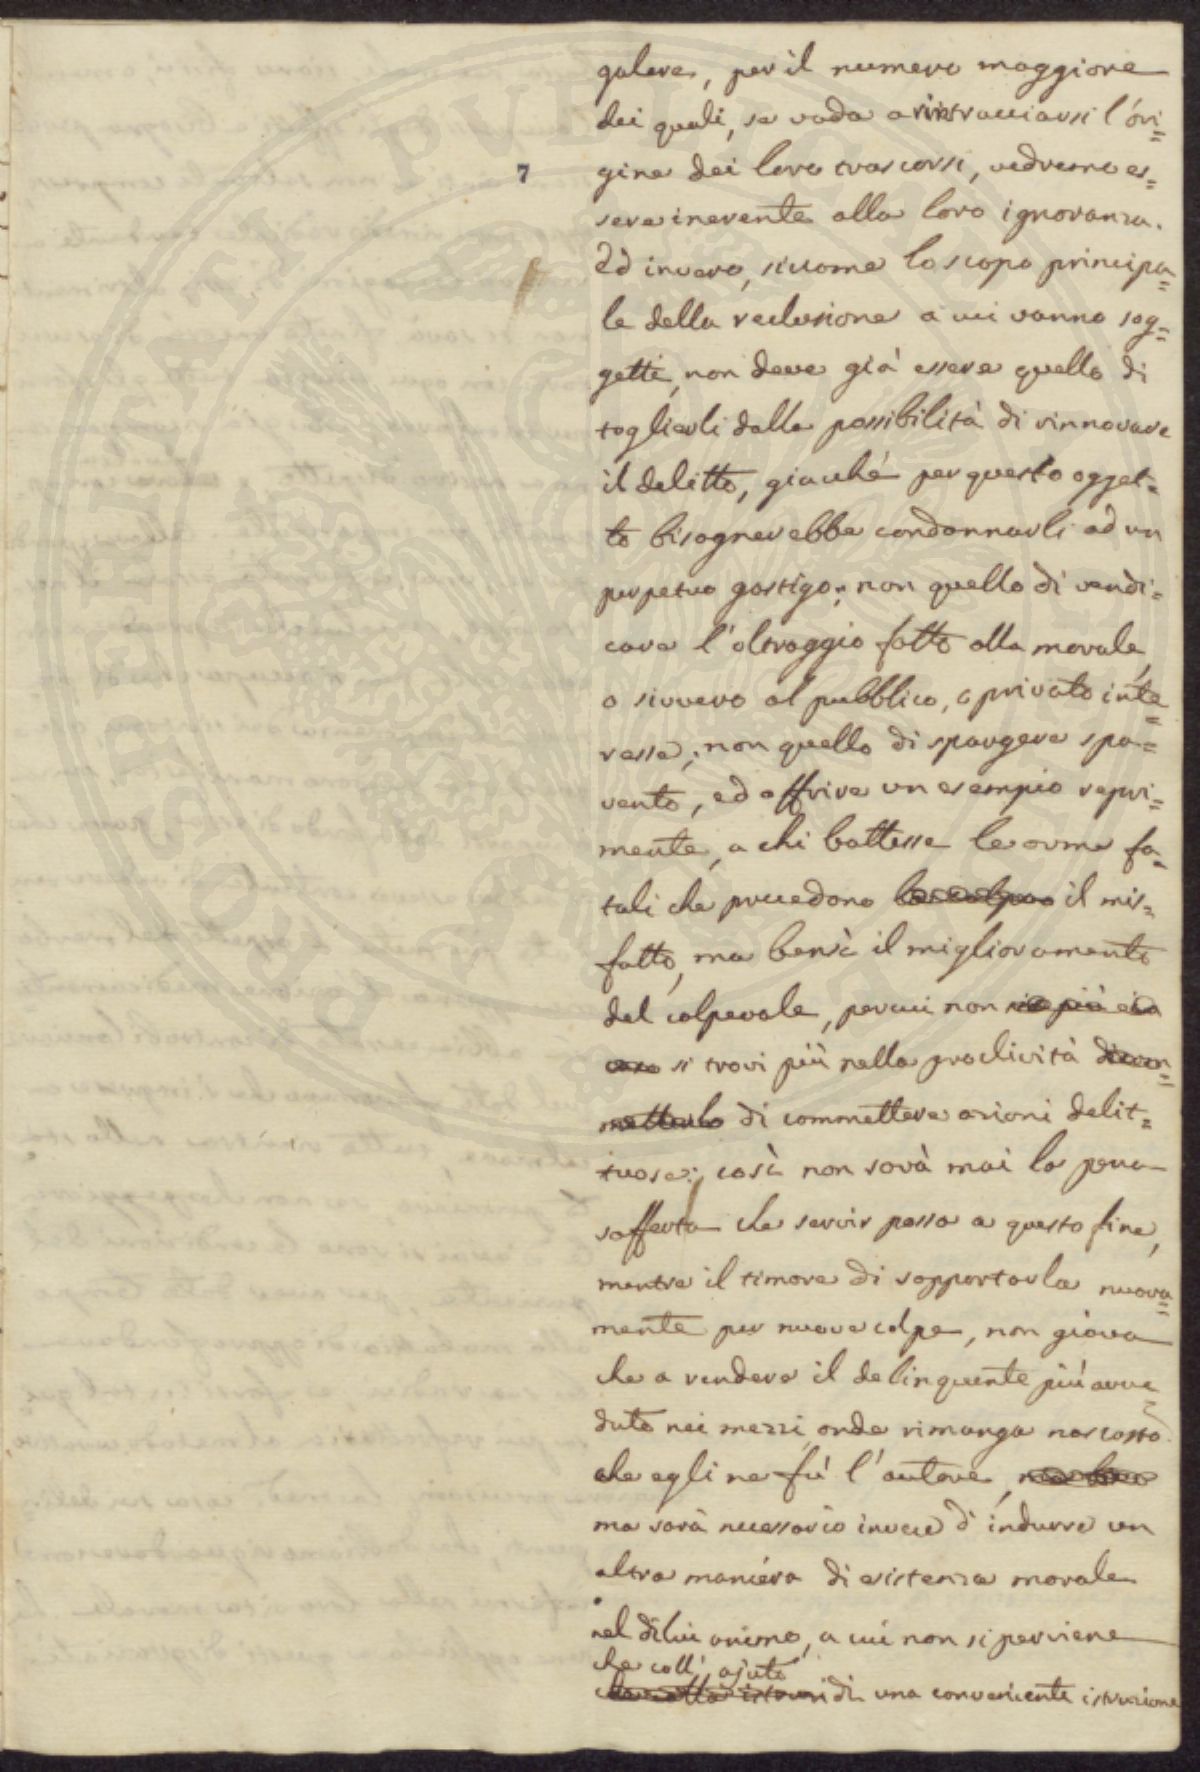 galere, per il numero maggiore
dei quali, se vada a rintracciarsi l'ori=
7
gine dei loro trascorsi, vedremo es=
sere inerente alla loro ignoranza.
Ed invero, siccome lo scopo principa=
le della reclusione a cui vanno sog=
getti, non deve già essere quello di
toglierli dalla possibilità di rinnovare
il delitto, giacché per questo ogget=
to bisognerebbe condannarli ad un
perpetuo gastigo; non quello di vendi=
care l'oltraggio fatto alla morale,
o sivvero al pubblico, o privato inte=
resse; non quello di spargere spa=
vento, ed offrire un esempio repri=
mente, a chi battesse le orme fa=
tali che precedono la colpa il mis=
fatto, ma bensì il miglioramento
del colpevole, percui non sia più in
caso si trovi più nella proclività di com=
metterlo di commettere azioni delit=
tuose; così non sarà mai la pena
sofferta che servir possa a questo fine,
mentre il timore di sopportarla nuova=
mente per nuove colpe, non giova
che a rendere il delinquente più avve=
duto nei mezzi, onde rimanga nascosto
che egli ne fù l'autore,
ma sarà necessario invece d'indurre un
altra maniera di esistenza morale
nel di lui animo, a cui non si perviene
che coll' ajuto
che colla istruzi di una conveniente istruzione